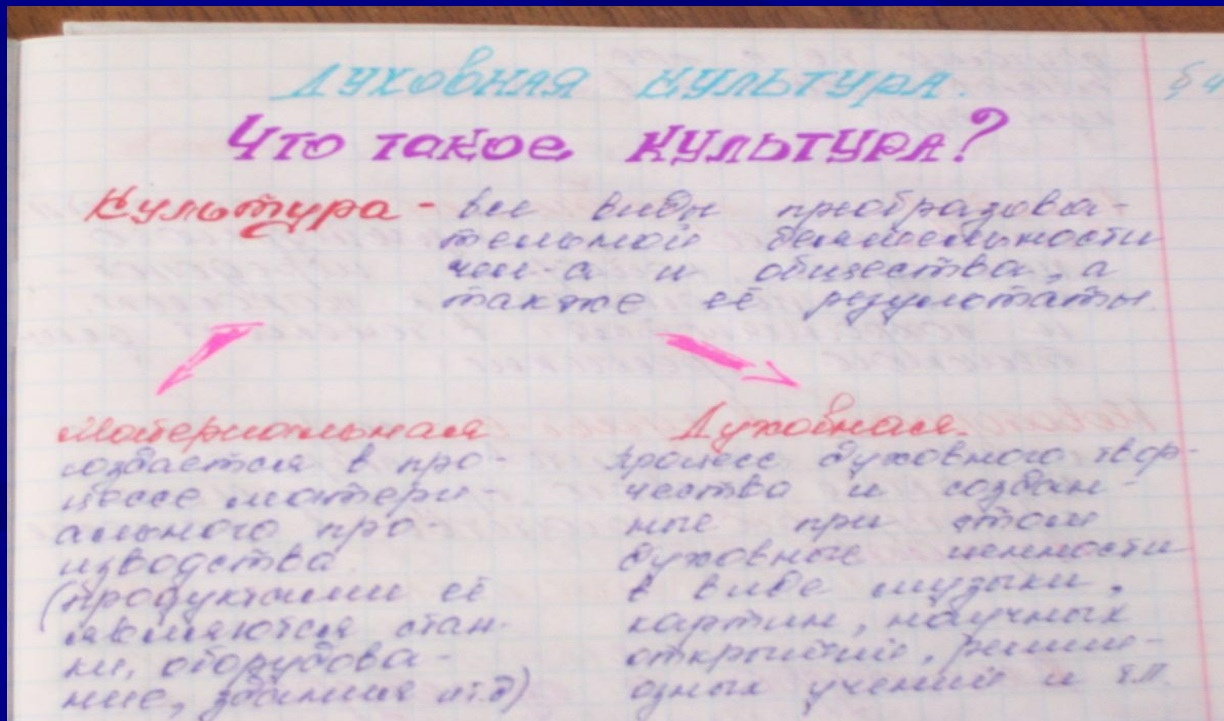 ДУХОВНАЯ КУЛЬТУРА.
§4
Что такое КУЛЬТУРА?
Культура - все виды преобразова-
тельной деятельности
чел-а и общества, а
также её результаты.
Материальная
создается в про-
цессе матери-
ального про-
изводства
(продуктами её
являются стан-
ки, оборудова-
ние, здания и т.д)
Духовная.
процесс духовного твор-
чества и создан-
ные при этом
духовные ценности
в виде музыки,
картин, научных
открытий, религи-
озных учений и т.п.